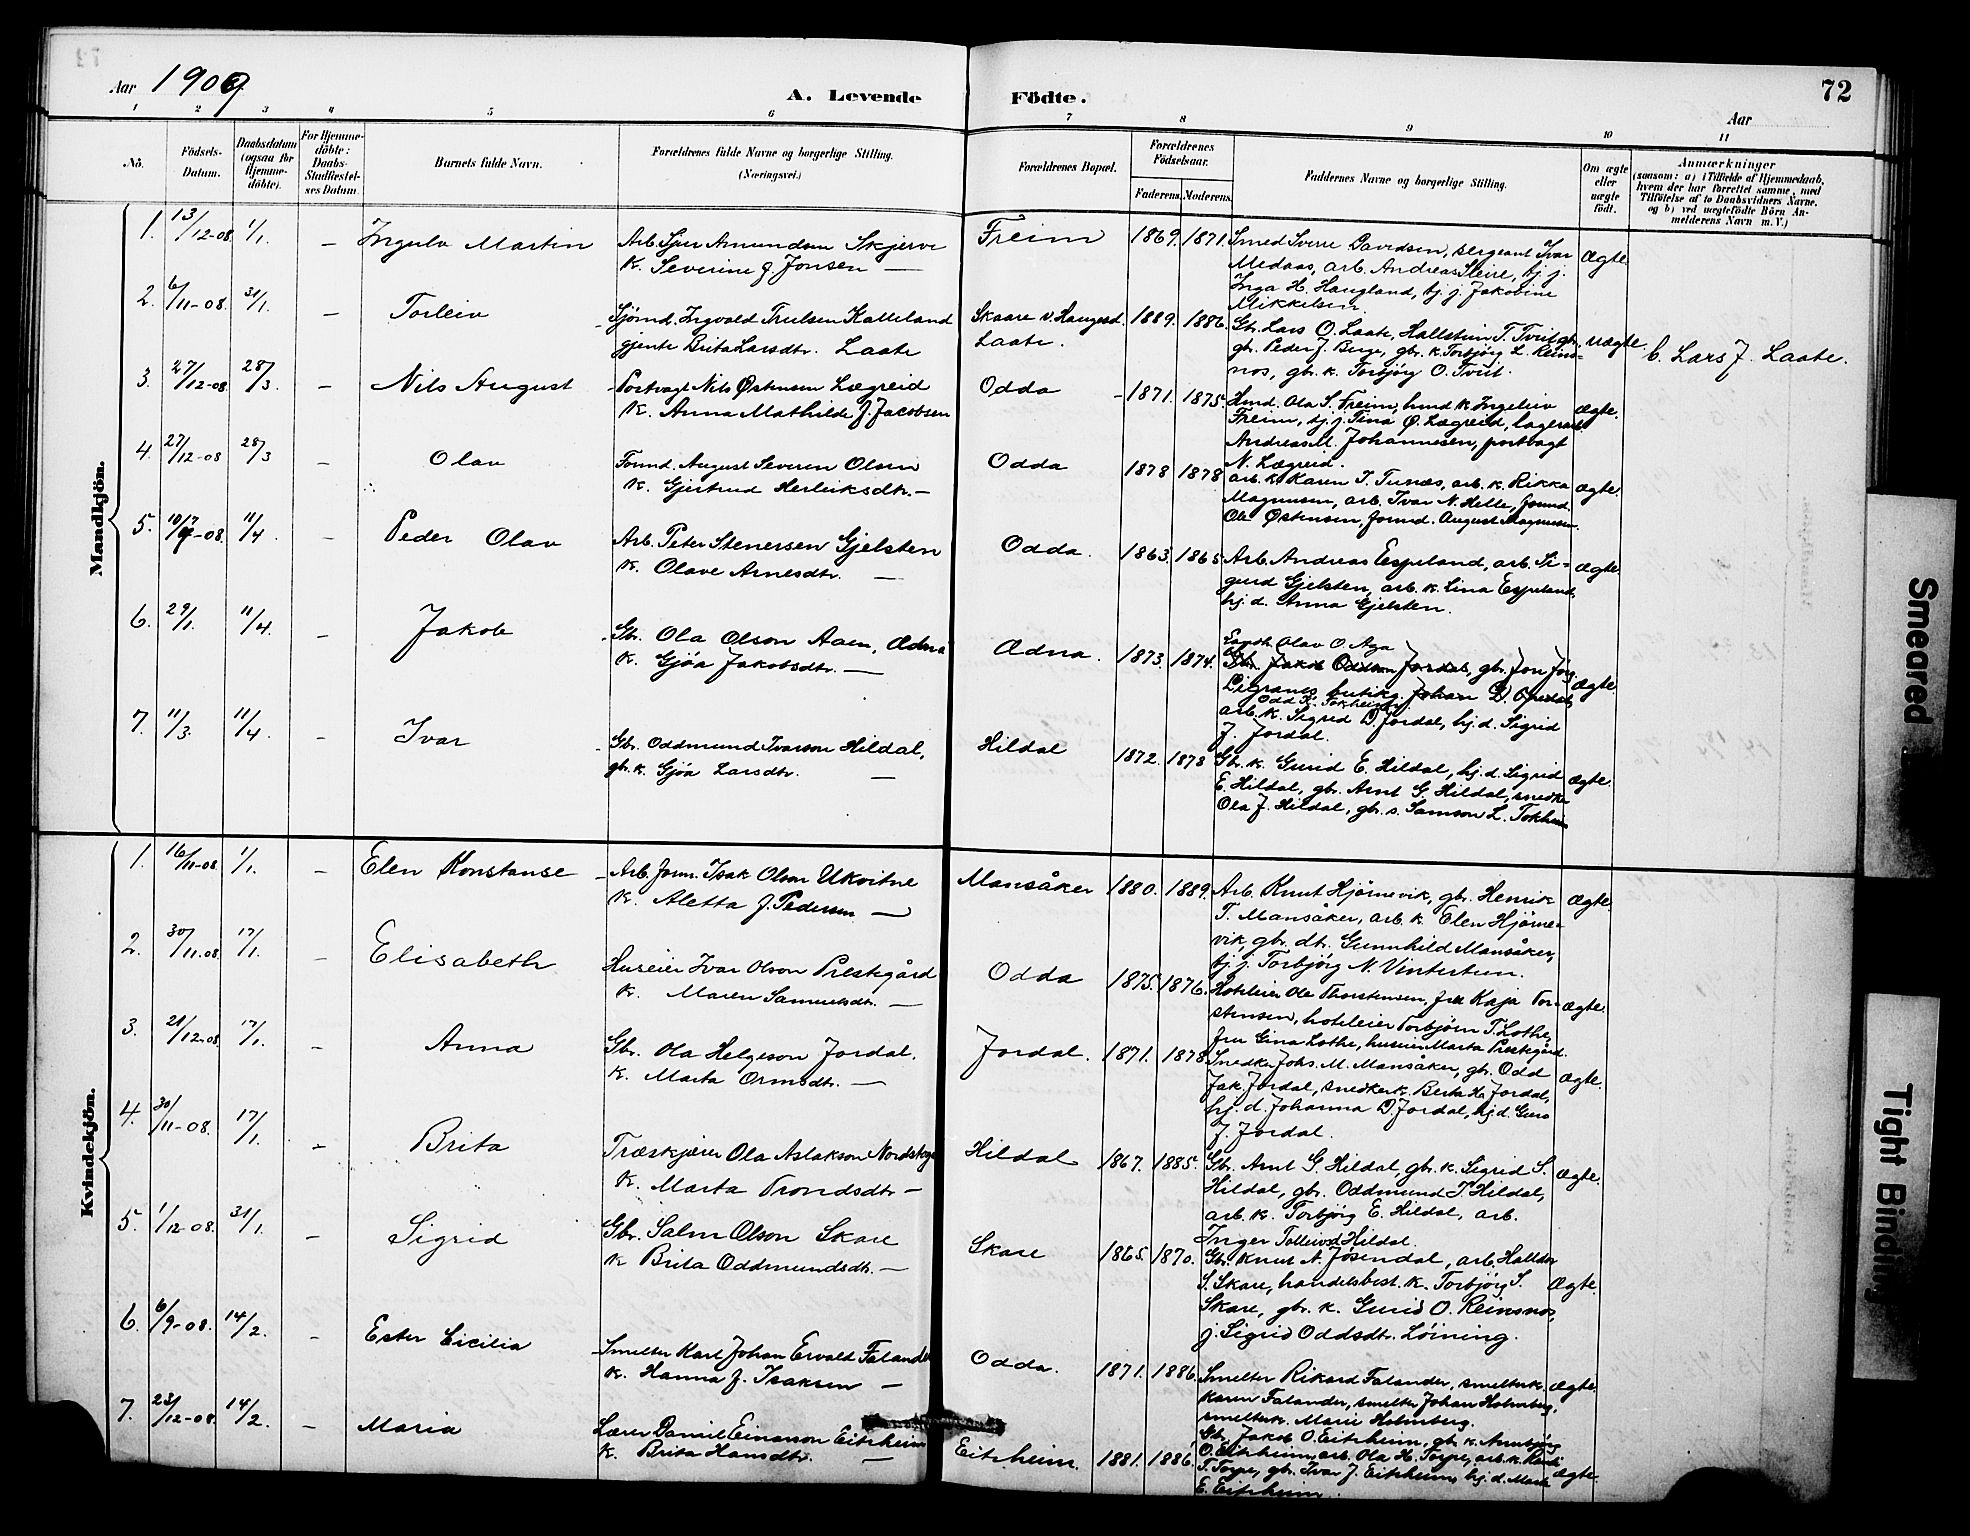 Aar 1909
A. Levende
Födte.
Aar
72
1 2 3 4 5 6 7 8 9 10 11
No.
Födsels-Datum.
Daabsdatum (ogsaa for Hjemmedöbte).
For Hjemmedöbte: Daabs-Stadfæstelses Datum.
Barnets fulde Navn.
Forældrenes fulde Navne og borgerlige Stilling. (Næringsvei.)
Forældrenes Bopæl.
Forældrenes Födselsaar.
Faderens. Moderens.
Faddernes Navne og borgerlige Stilling.
Om ægte eller uægte födt.
Anmærkninger (saasom: a) i Tilfælde af Hjemmedaab, hvem der har forrettet samme, med Tilföielse af to Daabsvidners Navne, og b) ved uægtefödte Börn Anmelderens Navn m. V.)
Mandkjön.
1. 13/12-08. 1/1. – Ingulv Martin
Arb. Sjur Amundsen Skjerve
K. Severine f. Jonsen —
Freim 1869. 1871.
Smed Sverre Davidsen, sergeant Ivar
Medaas, arb. Andreas Steire, tj. j.
Inga H. Haugland, tj. j. Jakobine
Mikkelsen.
Ægte.
2. 6/11-08. 31/1. – Torleiv
Sjømd. Ingvald Trulsen Kalleland
gjente Brita Larsdtr. Laate
Skaare v. Haugesd.
Laate.
1889. 1886.
Gbr. Lars O. Laate, Hallstein T. Tveit gbr.,
gbr. Peder J. Berge, gbr. k. Torbjørg L. Reins-
nos, gbr. k. Torbjørg O. Tveit.
uægte. b. Lars J. Laate.
3. 27/12-08 28/3. – Nils August
Portvagt Nils Østensen Lægreid
K. Anna Mathilde f. Jacobsen
Odda 1871. 1875.
Hmd. Ola S. Freim, hmd k Ingeleiv
Freim, tj. j. Tina Ø. Lægreid, lagerarb.
Andreas M. Johannesen, portvagt
N. Lægreid.
ægte.
4. 27/12-08 28/3 – Olav
Formd. August Severin Olsen
K. Gjertrud Herleiksdtr. –
Odda 1878 1878
arb. k. Karen T. Tunæs, arb. k. Rikka
Magnusen, arb. Ivar N. Helle, formd.
Ole Østensen, formd. August Magnusen.
ægte.
5. 10/7-08. 11/4. – Peder Olav
Arb. Peter Stenersen Gjelsten
K. Olave Arnesdtr. —
Odda. 1863. 1865
Arb. Andreas Espeland, arb. Si-
gurd Gjelsten, arb. k. Lina Espeland,
hj. d. Anna Gjelsten.
ægte.
6. 29/1. 11/4. – Jakob
Gbr. Ola Olson Aaen, Ædna
K. Gjøa Jakobsdtr. —
Ædna. 1873. 1874.
Olav O. Aga
Gbr. Jakob Oddson Jordal, gbr. Jon Jørg.
Pilgranes, Johan D. Opedal,
Odd K. Tokheim
arb. k. Sigrid D. Jordal, hj. d. Sigrid
J. Jordal.
ægte.
7. 11/3. 11/4. – Ivar
Gbr. Oddmund Ivarson Hildal,
gbr. k. Gjøa Larsdtr. —
Hildal 1872. 1873
Gbr. k. Gurid E. Hildal, hj. d. Sigrid
E. Hildal, gbr. Arnt G. Hildal, snedker
Ola J. Hildal, gbr. s. Samson L. Tokheim
ægte.
Kvindekjön.
1. 16/11-08. 1/1. – Elen Konstanse
Arb. form. Isak Olson Ukvitne
K. Aletta f. Pedersen —
Mansåker 1880. 1889.
Arb. Knut Hjørnevik, gbr. Henrik
T. Mansåker, arb. k. Elen Hjørne-
vik, gbr. dtr. Gunnhild Mansåker,
tj. j. Torbjørg N. Vintertun.
ægte.
2. 30/11.08. 17/1. – Elisabeth
Huseier Ivar Olson Prestegård
K. Maren Samuelsdtr. —
Odda 1875. 1876.
Hoteleier Ole Thorstensen, fru Kaja Tor-
stensen, hoteleier Torbjørn T. Lothe,
fru Gina Lothe, huseier Marta Prestegård.
ægte.
3. 21/12-08 17/1. – Anna
Gbr. Ola Helgeson Jordal.
K. Marta Ormsdtr. —
Jordal. 1871. 1878.
Snedker Johs. M. Mansåker, gbr. Odd
Jak. Jordal, snedkerk. Berta H. Jordal,
hj. d. Johanna D. Jordal, hj. d. Guro
J. Jordal.
ægte.
4. 30/11-08. 17/1. – Brita
Træskjærer Ola Aslakson Nordskog
K. Marta Trondsdtr. –
Hildal 1867. 1885.
Gbr. Arnt G. Hildal, gbr. k. Sigrid S.
Hildal, gbr. Oddmund I. Hildal,
arb. k. Torbjørg E. Hildal, arb.
Inger Tolleivsd Hildal.
ægte.
5. 1/12-08. 31/1. – Sigrid
Gbr. Salm. Olson Skare
K Brita Oddmundsdtr. —
Skare 1865. 1870.
Gbr. Knut N. Jøsendal, arb. Halldor
S. Skare, handelsbest. k. Torbjørg S.
Skare, gbr. k. Gurid O. Reinsnos,
j. Sigrid Oddsdtr. Løining.
Ægte.
6. 6/9-08. 14/2. – Ester Cicilia
Smelter Karl Johan Ervald Falander
K. Hanna f. Isaksen —
Odda. 1871. 1886.
Smelter Rikard Falander, smelterk.
Karen Falander, smelter Johan Holmberg,
smelterk. Marie Holmberg.
ægte.
7. 23/12-08. 14/2. – Maria
Lærer Daniel Einarson Eitrheim
K. Brita Hansdtr. —
Eitrheim. 1881. 1886.
Gbr. Jakob O. Eitrheim, gbr. k. Armbjørg
O. Eitrheim, arb. Ola H. Torpe, arb. k. Randi
T. Torpe, gbr. Ivar J. Eitrheim, hj. d. Marta
E. Eitrheim.
ægte.
Smeared
Tight Binding